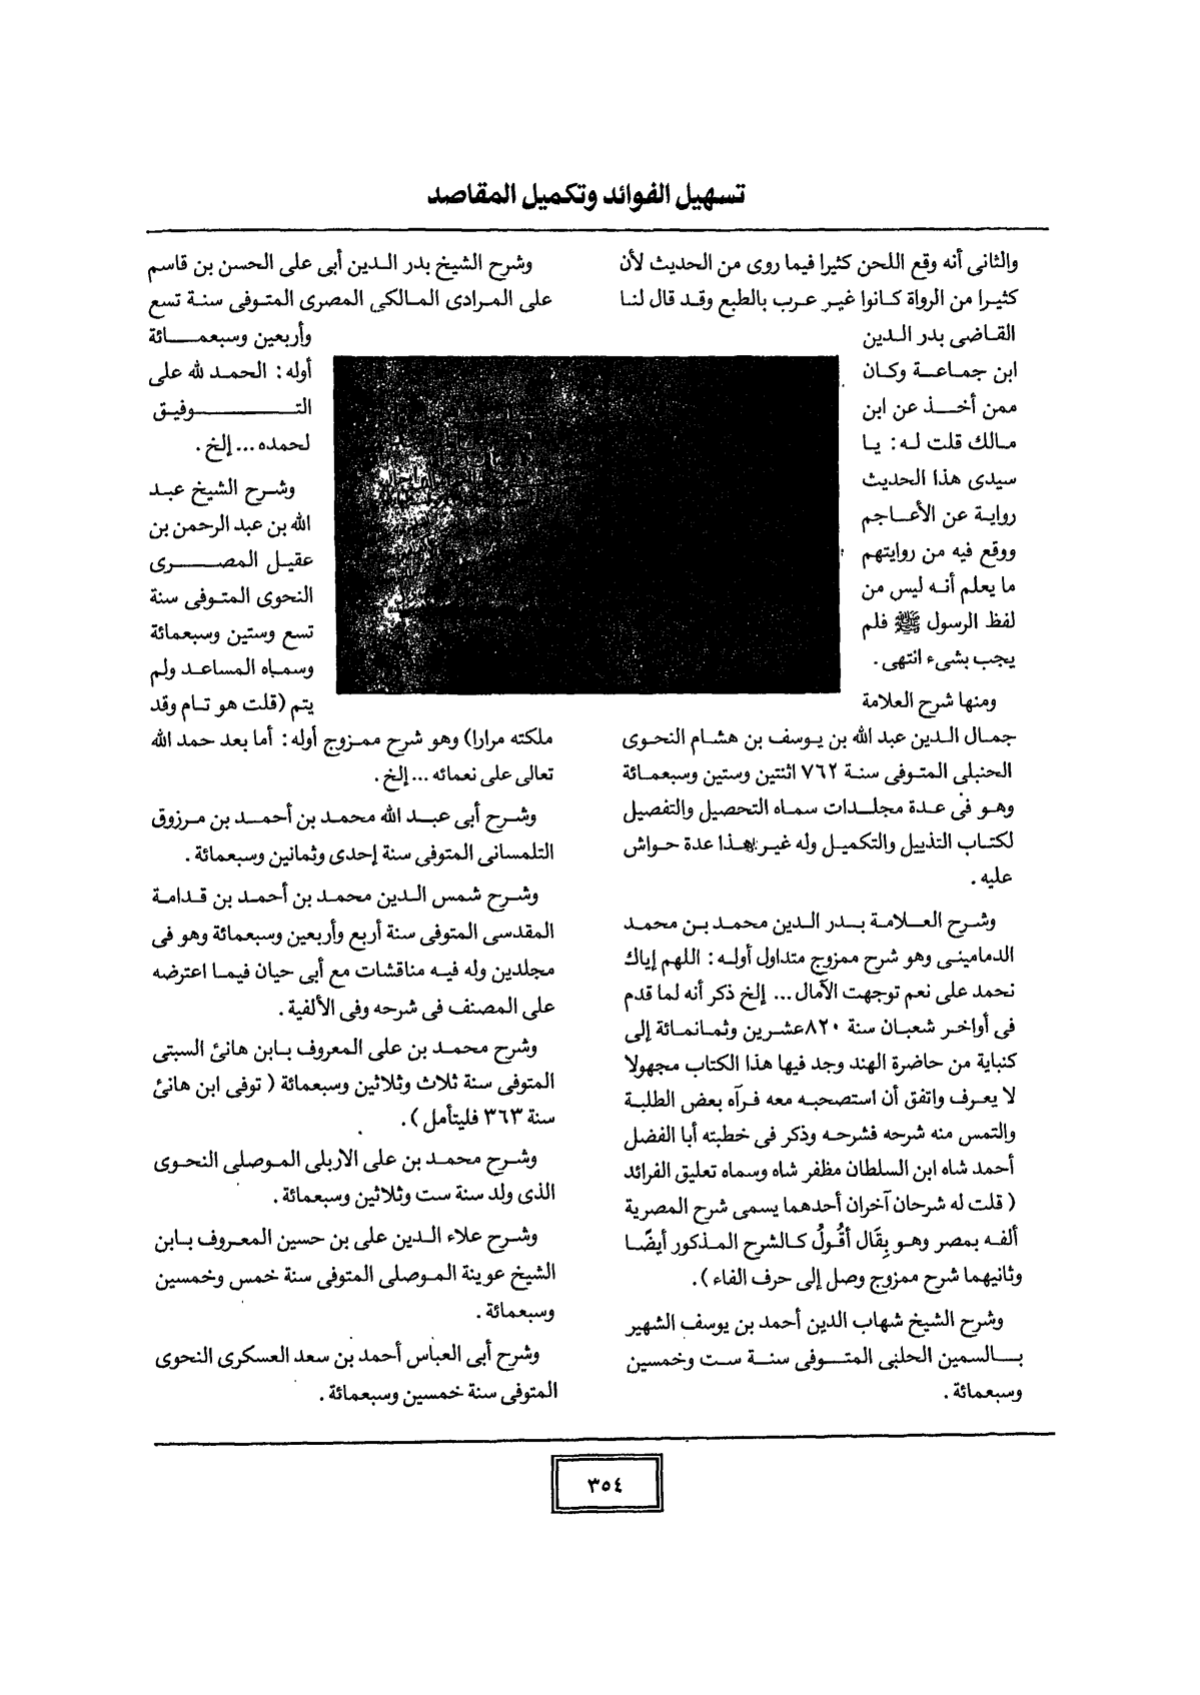 تسهيل الفوائد وتكميل المقاصد
والثانى أنه وقع اللحن كثيرا فيما روى من الحديث لأن
كثيرا من الرواة كانوا غير عرب بالطبع وقد قال لنا
القاضى بدر الدين
ابن جماعة وكان
ممن أخذ عن ابن
مالك قلت له: يا
سيدى هذا الحديث
رواية عن الأعاجم
ووقع فيه من روايتهم
ما يعلم أنه ليس من
لفظ الرسول ﷺ فلم
يجب بشىء انتهى.
ومنها شرح العلامة
جمال الدين عبد الله بن يوسف بن هشام النحوى
الحنبلى المتوفى سنة ٧٦٢ اثنتين وستين وسبعمائة
وهو فى عدة مجلدات سماه التحصيل والتفصيل
لكتاب التذييل والتكميل وله غير هذا عدة حواش
عليه.
وشرح العلامة بدر الدين محمد بن محمد
الدمامينى وهو شرح ممزوج متداول أوله: اللهم إياك
نحمد على نعم توجهت الآمال... إلخ ذكر أنه لما قدم
فى أواخر شعبان سنة ٨٢٠عشرين وثمانمائة إلى
كنباية من حاضرة الهند وجد فيها هذا الكتاب مجهولا
لا يعرف واتفق أن استصحبه معه فرآه بعض الطلبة
والتمس منه شرحه فشرحه وذكر فى خطبته أبا الفضل
أحمد شاه ابن السلطان مظفر شاه وسماه تعليق الفرائد
( قلت له شرحان آخران أحدهما يسمى شرح المصرية
ألفه بمصر وهو بِقَال أقُولُ كالشرح المذكور أيضًا
وثانيهما شرح ممزوج وصل إلى حرف الفاء ).
وشرح الشيخ شهاب الدين أحمد بن يوسف الشهير
بالسمين الحلبى المتوفى سنة ست وخمسين
وسبعمائة.
وشرح الشيخ بدر الدين أبى على الحسن بن قاسم
على المرادى المالكى المصرى المتوفى سنة تسع
وأربعين وسبعمائة
أوله: الحمد لله على
التوفيق
لحمده... إلخ.
وشرح الشيخ عبد
الله بن عبد الرحمن بن
عقيل المصرى
النحوى المتوفى سنة
تسع وستين وسبعمائة
وسماه المساعد ولم
يتم (قلت هو تام وقد
ملكته مرارا) وهو شرح ممزوج أوله: أما بعد حمد الله
تعالى على نعمائه... إلخ.
وشرح أبى عبد الله محمد بن أحمد بن مرزوق
التلمسانى المتوفى سنة إحدى وثمانين وسبعمائة.
وشرح شمس الدين محمد بن أحمد بن قدامة
المقدسى المتوفى سنة أربع وأربعين وسبعمائة وهو فى
مجلدين وله فيه مناقشات مع أبى حيان فيما اعترضه
على المصنف فى شرحه وفى الألفية.
وشرح محمد بن على المعروف بابن هانئ السبتى
المتوفى سنة ثلاث وثلاثين وسبعمائة ( توفى ابن هانئ
سنة ٣٦٣ فليتأمل ).
وشرح محمد بن على الاربلى الموصلى النحوى
الذى ولد سنة ست وثلاثين وسبعمائة.
وشرح علاء الدين على بن حسين المعروف بابن
الشيخ عوينة الموصلى المتوفى سنة خمس وخمسين
وسبعمائة.
وشرح أبى العباس أحمد بن سعد العسكرى النحوى
المتوفى سنة خمسين وسبعمائة.
٣٥٤